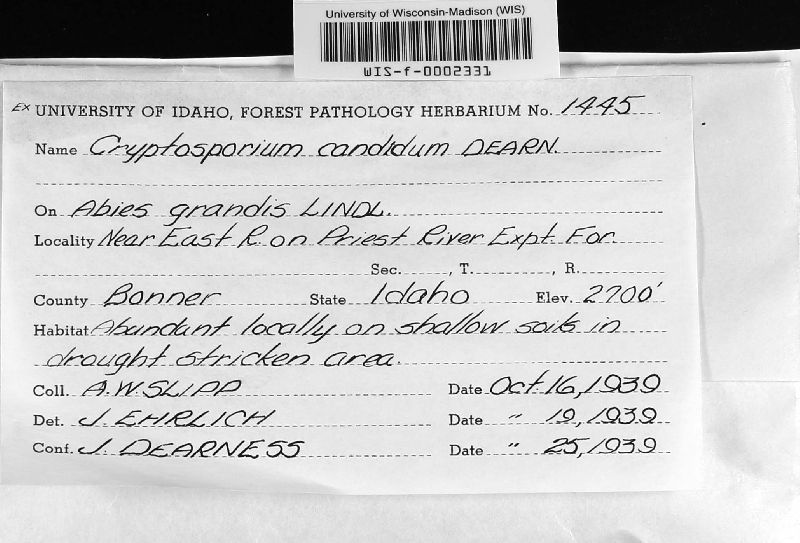 University of Wisconsin-Madison (WIS)
WIS-f-0002331
EX UNIVERSITY OF IDAHO, FOREST PATHOLOGY HERBARIUM No. 1445
Name Cryptosporium candidum DEARN.
On Abies grandis LINDL.
Locality Near East R. on Priest River Expt. For.
Sec. , T. , R.
County Bonner State Idaho Elev. 2700'
Habitat Abundant locally on shallow soils in
drought stricken area.
Coll. A.W. SLIPP Date Oct. 16, 1939
Det. J. EHRLICH Date " 19, 1939
Conf. J. DEARNESS Date " 25, 1939